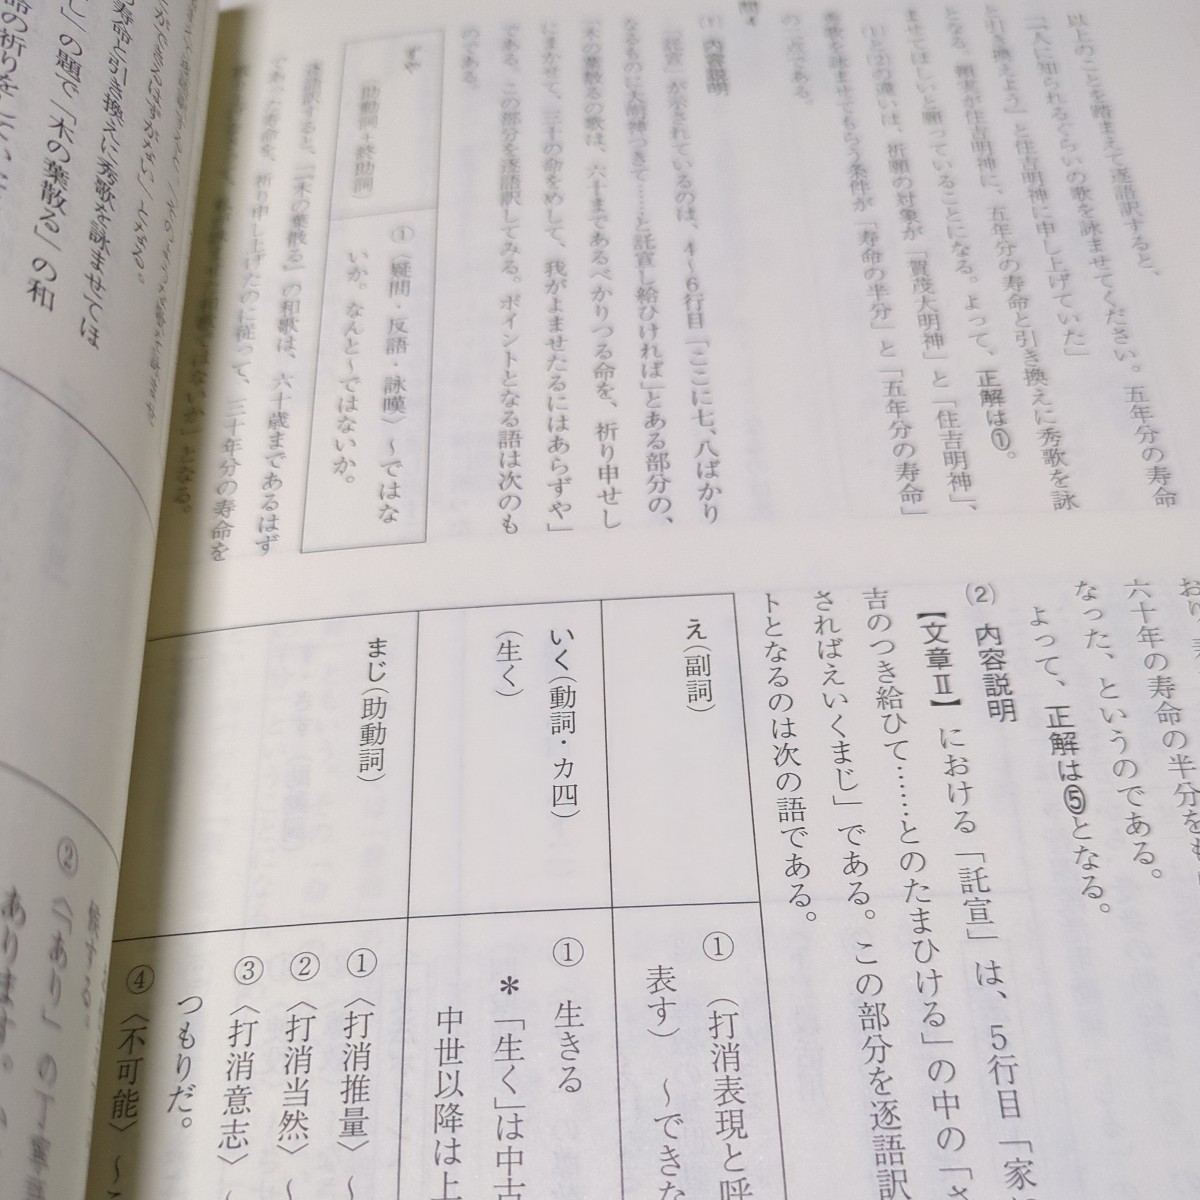 以上のことを踏まえて逐語訳すると、
「人に知られるぐらいの歌を詠ませてください。五年分の寿命
と引き換えよう」と住吉明神に申し上げていた」
となる。頼実が住吉明神に、五年分の寿命と引き換えに秀歌を詠
ませてほしいと願っていることになる。よって、正解は①。
(1)と(2)の違いは、祈願の対象が「賀茂大明神」と「住吉明神」、
秀歌を詠ませてもらう条件が「寿命の半分」と「五年分の寿命」
の二点である。
問4
(1) 内容説明
「託宣」が示されているのは、4～6行目「ここに七、八ばかり
なるものに大明神つきて……と託宣し給ひければ」とある部分の、
「木の葉散るの歌は、六十まであるべかりつる命を、祈り申せし
にまかせて、三十の命をめして、我がよませたるにはあらずや」
である。この部分を逐語訳してみる。ポイントとなる語は次のも
のである。
ずや
(助動詞＋終助詞)
①〈疑問・反語・詠嘆〉～ではな
いか。なんと～ではないか。
逐語訳すると、「『木の葉散る』の和歌は、六十歳まであるはず
であった寿命を、祈り申し上げたのに従って、三十年分の寿命を
ではないか」となる。
六十年の寿命の半分を
なった、というのである。
よって、正解は⑤となる。
(2) 内容説明
【文章Ⅱ】における「託宣」は、5行目「家
吉のつき給ひて……とのたまひける」の中の「さ
さればえいくまじ」である。この部分を逐語訳
トとなるのは次の語である。
え(副詞)
①（打消表現と呼
表す）～できな
いく(動詞・カ四)
(生く)
① 生きる
＊「生く」は中古
中世以降は上
まじ(助動詞)
①〈打消推量〉
②〈打消当然〉
③〈打消意志〉
つもりだ。
④〈不可能〉
の寿命と引き換えに秀歌を詠ませてほ
し」の題で「木の葉散る」の和
の祈りをしていた
②〈「あり」の丁寧語
あります。